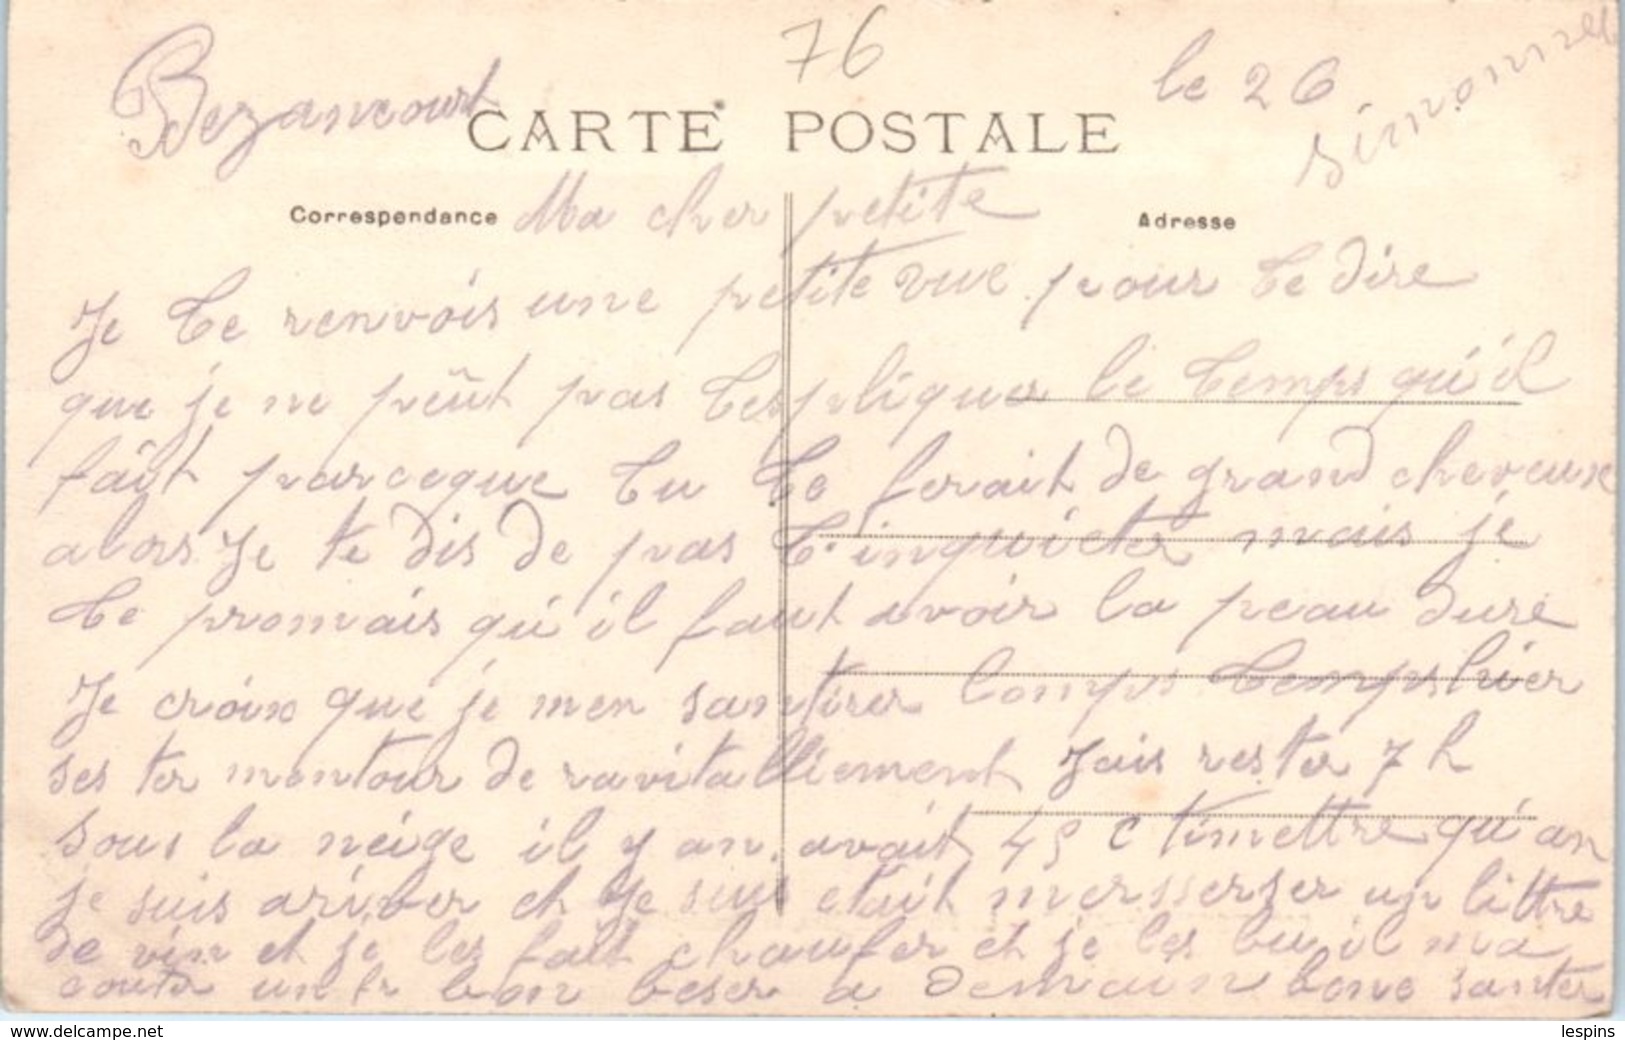 76
Bezancourt
le 26
simonnet
CARTE POSTALE
Correspondance
Adresse
Ma cher petite
Je te renvois une petite vue pour te dire
que je ne peût pas tespliquer le temps qu'il
fâit parceque tu te ferait de grand cheveux
alors Je te dis de pas t'inquieter mais je
te promais qu'il faut avoir la peau dure
Je croix que je men santirer lomps temps hier
ses ter montour de ravitalliement Jais rester 7 h
sous la neige il y an avait 45 c timettre qu'an
je suis ariver et Je suis etait un littre
de vin et je les fait chaufer et je les bu il ma
couta un fr bon beser a demain bone santer
www.delcampe.net
lespins